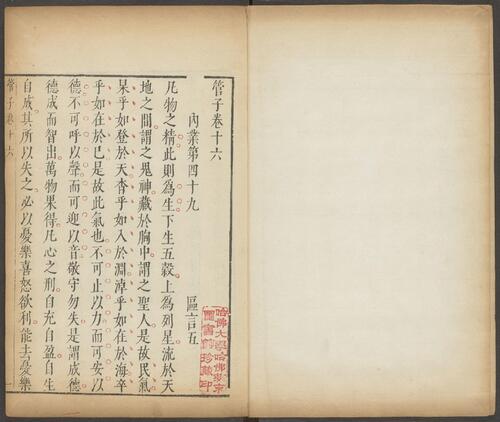 管子卷十六
內業第四十九
區言五
凡物之精此則為生下生五穀上為列星流於天
地之間謂之鬼神藏於胸中謂之聖人是故民氣
杲乎如登於天杳乎如入於淵淖乎如在於海卒
乎如在於己是故此氣也不可止以力而可安以
德不可呼以聲而可迎以音敬守勿失是謂成德
德成而智出萬物果得凡心之刑自充自盈自生
自成其所以失之必以憂樂喜怒欲利能去憂樂
管子卷十六
一
哈佛大學哈佛燕京
圖書館珍藏印